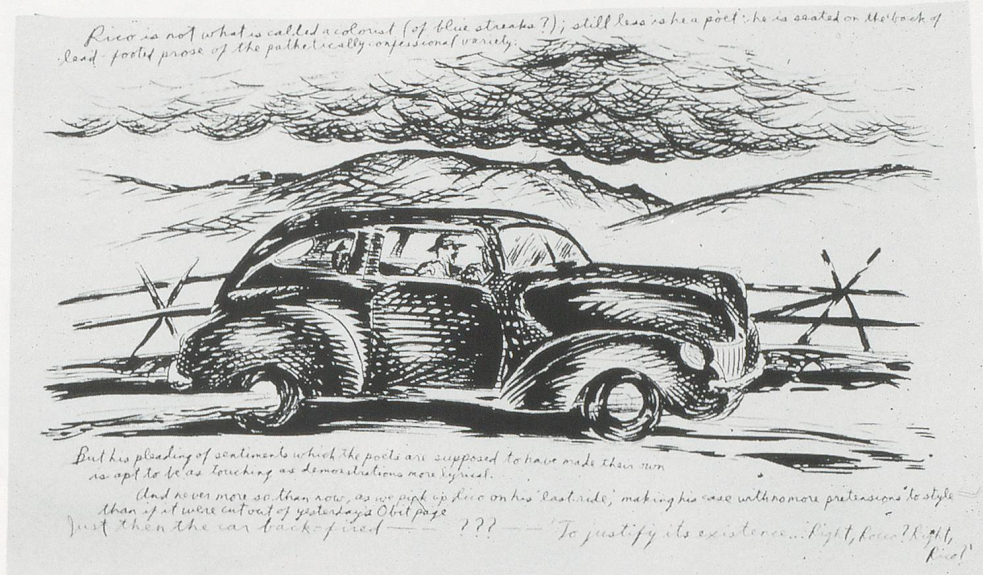 Rico is not what is called a colorist (of blue streaks?); still less is he a poet: he is seated on the back of
lead-footed prose of the pathetically-confessional variety.
But his pleading of sentiments which the poets are supposed to have made their own
is apt to be as touching as demonstrations more lyrical.
And never more so than now, as we pick up Rico on his 'last ride,' making his case with no more pretensions to style
than if it were cut out of yesterday's Obit page
Just then the car back-fired — ??? — 'To justify its existence... Right, Rocco? Right,
Rico?'